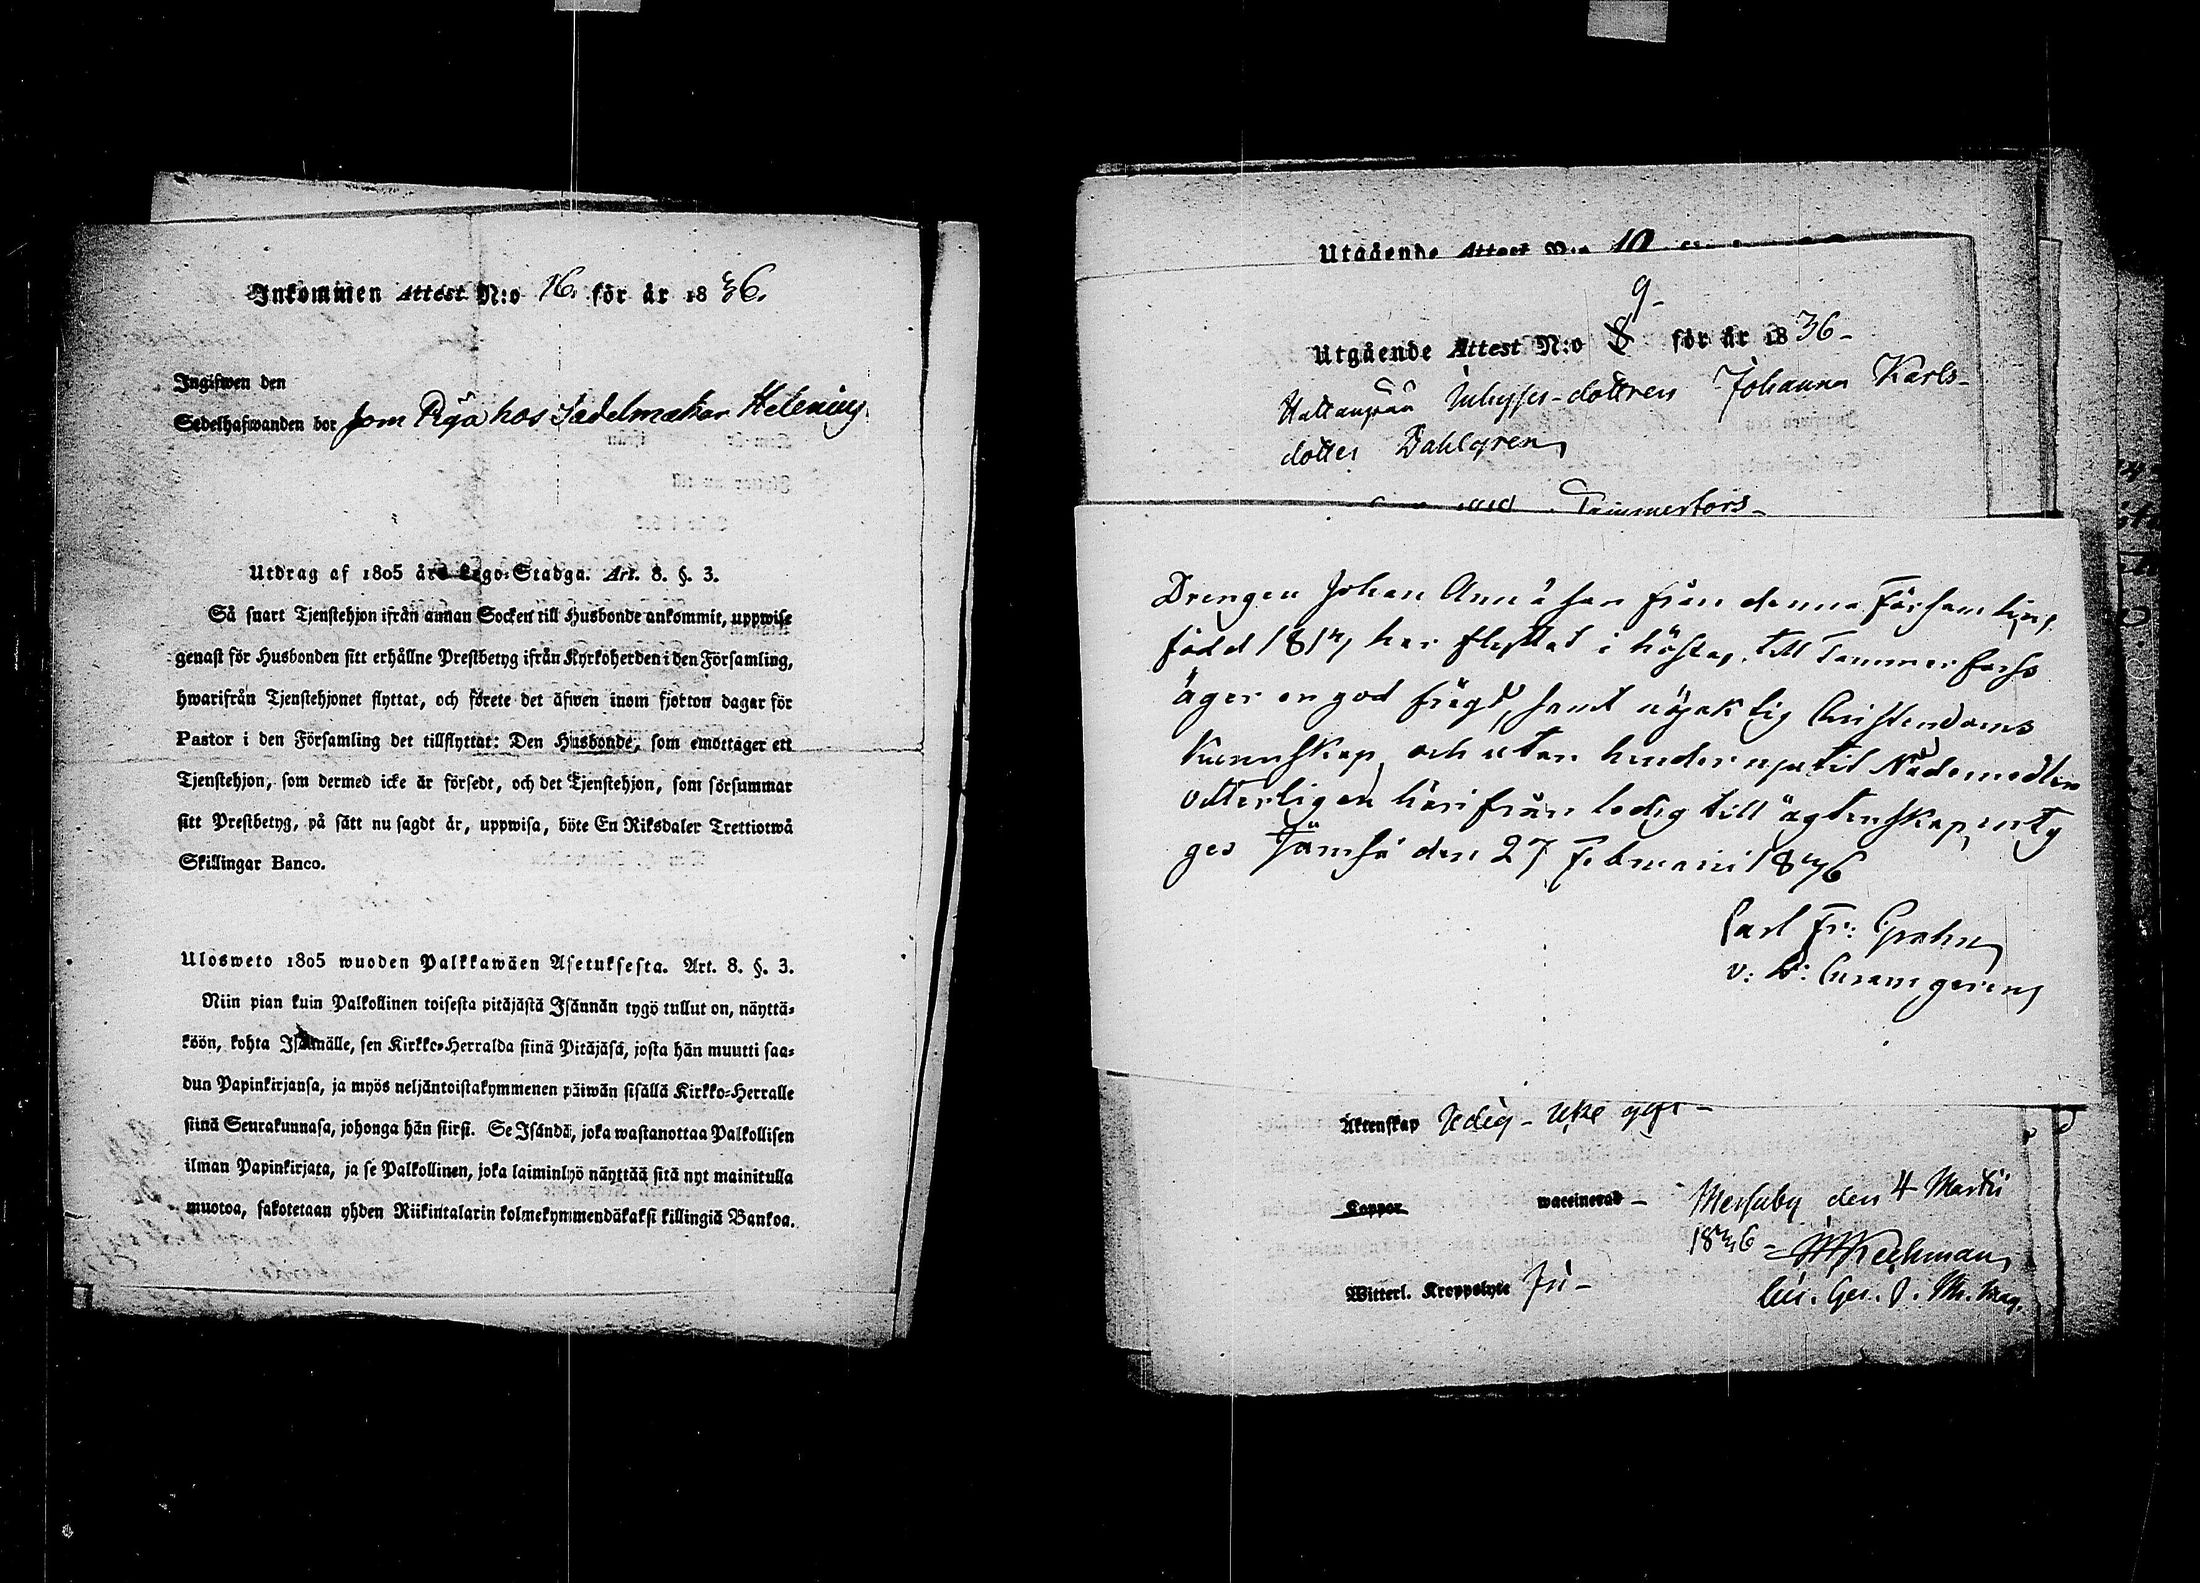 Inkommen Attest N:o 16. för år 1836.
Ingifwen den
Sedelhafwanden bor som Piga hos Sadelmakar Helening
Utdrag af 1805 års Lego-Stadga. Art. 8. §. 3.
Så snart Tjenstehjon ifrån annan Socken till Husbonde ankommit, uppwise
genast för Husbonden sitt erhållne Prestbetyg ifrån Kyrkoherden i den Församling,
hwarifrån Tjenstehjonet flyttat, och förete det äfwen inom fjorton dagar för
Pastor i den Församling det tillflyttat: Den Husbonde, som emottager ett
Tjenstehjon, som dermed icke är försedt, och det Tjenstehjon, som försummar
sitt Prestbetyg, på sätt nu sagdt är, uppwisa, böte En Riksdaler Trettiotwå
Skillingar Banco.
Ulosweto 1805 wuoden Palkkawäen Asetuksesta. Art. 8. §. 3.
Niin pian kuin Palkollinen toisesta pitäjästä Isännän tygö tullut on, näyttä-
köön, kohta Isännälle, sen Kirkko-Herralda siinä Pitäjäsä, josta hän muutti saa-
dun Papinkirjansa, ja myös neljäntoistakymmenen päiwän sisällä Kirkko-Herralle
siinä Seurakunnasa, johonga hän siirsi. Se Isändä, joka wastanottaa Palkollisen
ilman Papinkirjata, ja se Palkollinen, joka laiminlyö näyttää sitä nyt mainitulla
muotoa, sakotetaan yhden Riikintalarin kolmekymmendäkaksi killingiä Bankoa.
Utgående Attest N:o 10
9-
Utgående Attest N:o 8 för år 1836-
Inhyses-dottren Johanna Karls-
dotter Dahlgren
Tammerfors-
Drengen Johan Annäsan från denna Församling,
född 1817, har flyttat i höstas till Tammerfors
äger en god frägd, samt nöjaktig Christendoms
kunnskap och utan hinder njutit Nådemedlen
Vitterligen härifrån ledig till ägtenskap, bety
ges Jämsä den 27 Februarii 1836
Carl Fr: Grahn
v: Curam gerens
Äktenskap ledig-
Koppor waccinerad - Messuby den 4 Martii
1836 -
Witterl. Kroppslyte